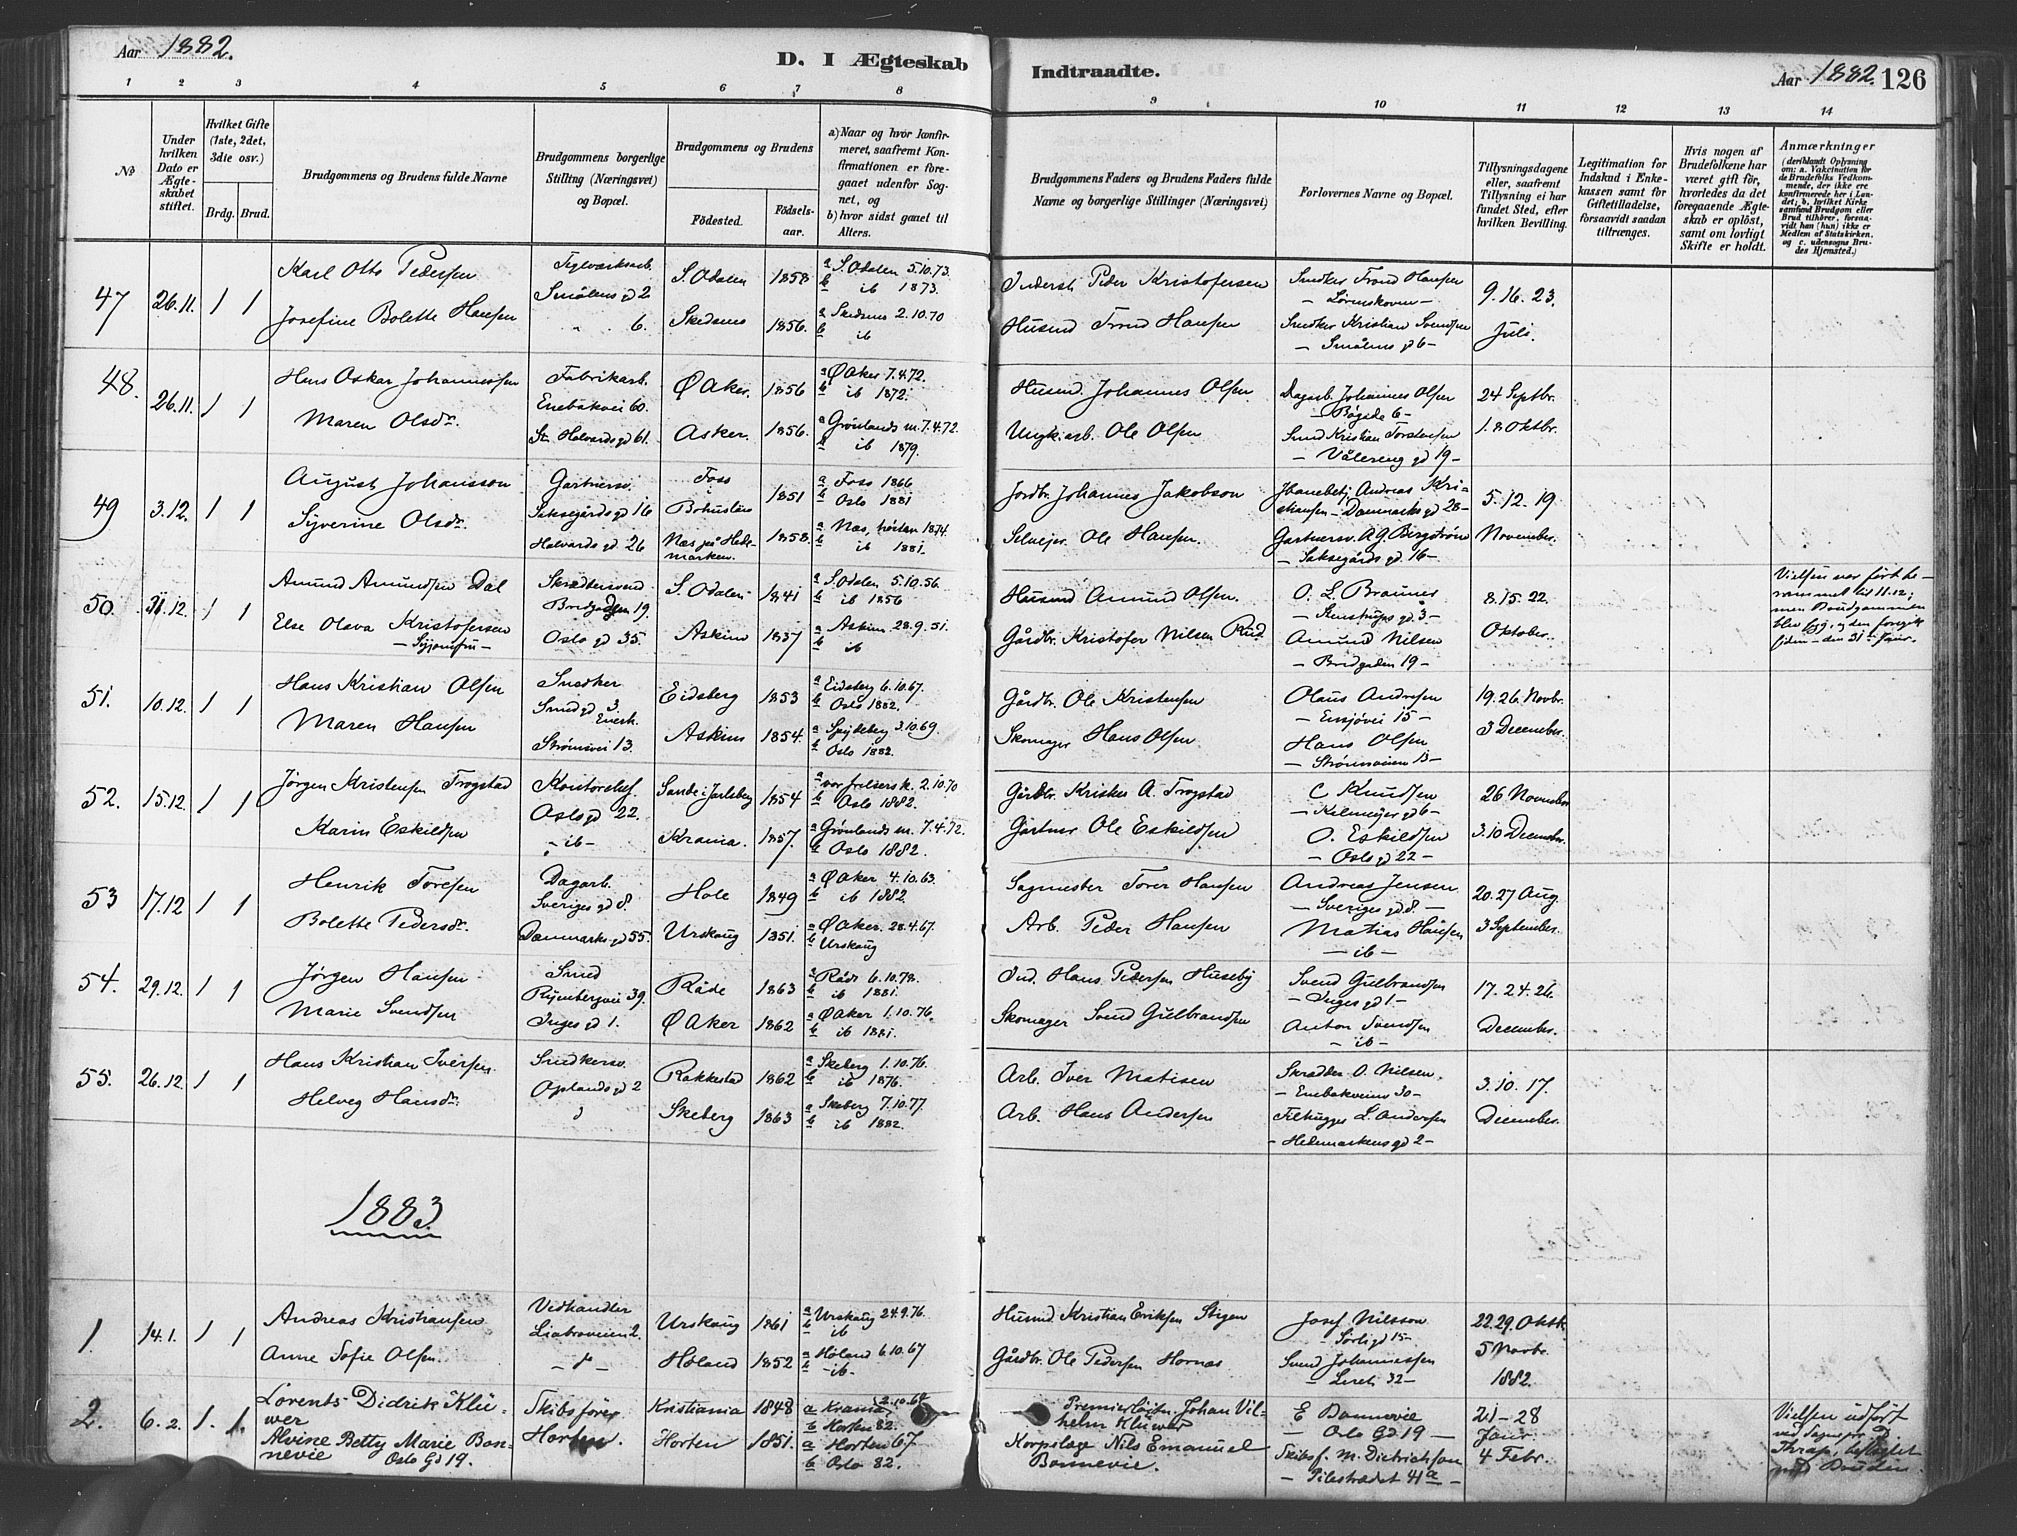 Aar 1882.
D. I Ægteskab Indtraadte.
Aar 1882. 126
1 2 3 4 5 6 7 8 9 10 11 12 13 14
No
Under hvilken Dato er Ægteskabet stiftet.
Hvilket Gifte (1ste, 2det, 3die osv.)
Brdg. Brud.
Brudgommens og Brudens fulde Navne
Brudgommens borgerlige Stilling (Næringsvei) og Bopæl.
Brudgommens og Brudens
Fødested. Fødselsaar.
a) Naar og hvor konfirmeret, saafremt Konfirmationen er foregaaet udenfor Sognet, og
b) hvor sidst gaaet til Alters.
Brudgommens Faders og Brudens Faders fulde Navne og borgerlige Stillinger (Næringsvei)
Forlovernes Navne og Bopæl.
Tillysningsdagene eller, saafremt Tillysning ei har fundet Sted, efter hvilken Bevilling.
Legitimation for Indskud i Enkekassen samt for Giftetilladelse, forsaavidt saadan tiltrænges.
Hvis nogen af Brudefolkene har været gift før, hvorledes da det foregaaende Ægteskab er opløst, samt om lovligt Skifte er holdt.
Anmærkninger
(deriblandt Oplysning om: a. Vakcination for de Brudefolks Vedkommende, der ikke ere konfirmerede her i Landet; b. hvilket Kirkesamfund Brudgom eller Brud tilhører, forsaavidt han (hun) ikke er Medlem af Statskirken, og c. udensogns Brudes Hjemsted.)
47 26.11. 1 1 Karl Otto Pedersen Teglværksarb. S. Odalen 1858 a S. Odalen 5.10.73. Peder Kristofersen Snedker Trond Hansen 9. 16. 23.
Smålens gd 2 b ib 1873. – Lørenskoven –
Josefine Bolette Hansen " 6. Skedsmo 1856. a Skedsmo 2.10.70 Husmd Trond Hansen Snedker Kristian Svendsen Juli.
b ib – Smålens gd 6 –
48. 26.11. 1 1 Hans Oskar Johannessen Fabrikarb. Ø Aker. 1856 a Ø Aker 7.4.72. Husmd. Johannes Olsen Dagarb. Johannes Olsen 24 Septbr.
Enebakvei 60. b ib 1872. – Bøgade 6 –
Maren Olsdr. St. Halvards gd 61. Asker. 1856. a Grønlands m. 7.4.72. Ole Olsen Smed Kristian Torstensen 1. 8 Oktbr.
b ib 1879. – Vålereng gd 19 –
49 3.12. 1 1 August Johansson Gartnersv. Foss 1851 a Foss 1866 Jordbr. Johannes Jakobson Jbanebetj. Andreas Kri- 5. 12. 19
Saksegårds gd 16 Bohuslän b Oslo 1881 stiansen – Danmarks gd 28 –
Syverine Olsdr. Halvards gd 26 Næs på Hede- 1858. a Næs, høsten 1874. Selvejer Ole Hansen. Gartnersv. A. G. Bergstrøm November.
marken. b ib 1881. – Saksegårds gd 16 –
50. 31.12. 1 1 Amund Amundsen Dal Skræddersvend S. Odalen 1841 a S. Odalen 5.10.56. Husmd Amund Olsen. O. L. Braunes 8. 15. 22. Vielsen var først be-
Brogaden 19. b ib 1856 gd 3 – rammet til 11.12;
Else Olava Kristofersen Oslo gd 35. Askim 1837 a Askim 28.9.51. Gårdbr. Kristofer Nilsen Rud Amund Nilsen Oktober. men Brudgommen
– Syjomfru – b ib – Brogaden 19 – blev syg, og den foregik
– den 31te
51. 10.12. 1 1 Hans Kristian Olsen Snedker Eidsberg 1853 a Eidsberg 6.10.67. Gårdbr. Ole Kristensen Olaus Andresen 19. 26. Novbr.
Smed gd 3, b Oslo 1882. – Ensjøvei 15 –
Maren Hansen Strømsvei 13. Askim 1854. a Spydeberg 3.10.69. Skomager Hans Olsen Hans Olsen 3 December.
b Oslo 1882. – Strømsveien 13 –
52. 15.12. 1 1 Jørgen Kristensen Trogstad Kontorchef Sande i Jarlsberg 1854 a vor frelsers k. 2.10.70 Gårdbr. Krister A. Trogstad C Knudsen 26 November
Oslo gd 22. b Oslo 1882. gd 6 –
Karin Eskildsen – ib – Krania. 1857. a Grønlands m. 7.4.72. Gartner Ole Eskildsen O. Eskildsen 3. 10 December.
b Oslo 1882. – Oslo gd 22 –
53 17.12 1 1 Henrik Toresen Dagarb. Hole 1849 a Ø Aker 4.10.63. Sagmester Torer Hansen Andreas Jensen 20. 27 Aug.
Sveriges gd 8. b ib 1882. – Sveriges gd 8. –
Bolette Pedersdr. Danmarks gd 55. Urskoug 1851. a Ø Aker. 28.4.67. Arb. Peder Hansen Matias Hansen 3 September.
b Urskoug – ib –
54. 29.12. 1 1 Jørgen Hansen Smed Råde 1863 a Råde 6.10.78. Ind. Hans Pedersen Huseby Svend Gulbrandsen 17. 24. 26.
Rymbergvei 39. b ib 1881. – Inges gd 1 –
Marie Svendsen Inges gd 1. Ø Aker 1862 a Ø Aker 1.10.76. Skomager Svend Gulbrandsen Anton Svendsen December.
b ib 1881. – ib –
55. 26.12. 1 1 Hans Kristian Iversen Snedkersv. Rakkestad 1862 a Skeberg 1.10.76. Arb. Iver Matisen Skrædder O. Nilsen. 3. 10. 17.
Oplands gd 2 b ib 1876. – Enebakveien 30 –
Helveg Hansdr. Skeberg 1863 a Skeberg 7.10.77. Arb. Hans Andersen Filhugger L Andersen December.
b ib 1882. – Hedemarkens gd 2 –
1883.
1. 14.1. 1 1 Andreas Kristiansen Vedhandler Urskoug 1861 a Urskoug 24.9.76. Husmd Kristian Eriksen Stigen Josef Nilsson 22. 29. Oktb.
Liabroveien 2. b ib – Sørligd 15 –
Anne Sofie Olsen. Høland 1852 a Høland 6.10.67 Gårdbr. Ole Pedersen Hornæs Svend Johannessen 5 Novbr.
b – ib – – Leret 32 – 1882.
2. 6.2. 1. 1. Lorents Didrik Klü- Skibsfører Kristiania 1848 a Krania 2.10.64 Premierløitn. Johan Vil- E Bonnevie 21 – 28 Vielsen udført
wer Horten. b Horten 82. helm Klüwer – Oslo Gd 19 – Janr.
Alvine Betty Marie Bon- Horten 1851. a Horten 67 Korpslæge Nils Emanuel Skibsf. M. Dietrichson 4 Febr.
nevie Oslo Gd 19. b Oslo 82. Bonnevie. – Pilestrædet 41a – Bruden.